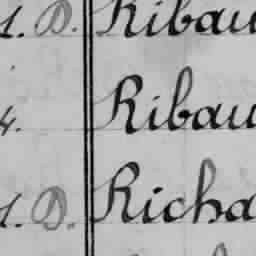 1. D. Ribau
4. Ribau
1. D. Richa